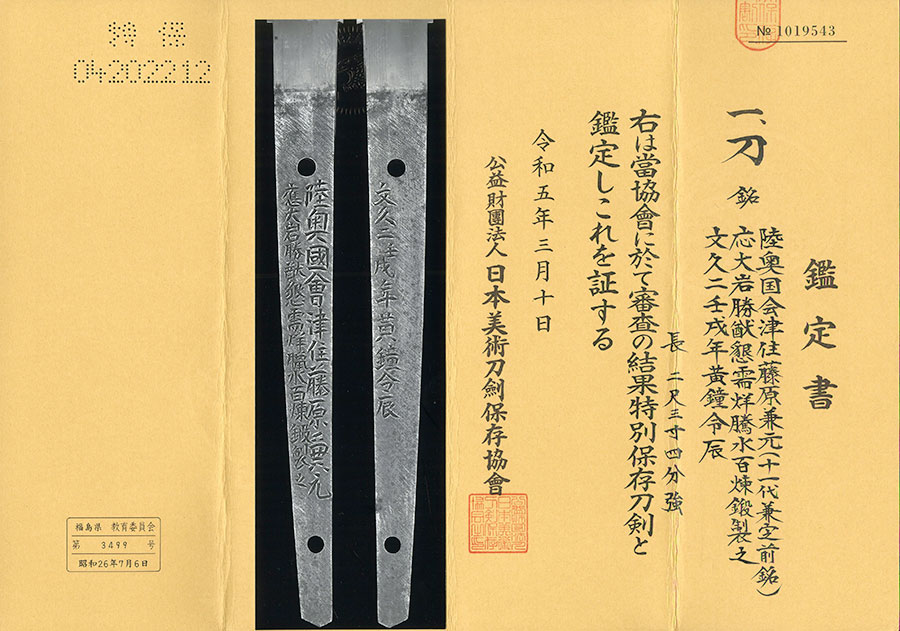 № 1019543
鑑定書
一、刀 銘
陸奥国会津住藤原兼元(十一代兼定前銘)
応大岩勝猷懇需烊騰水百煉鍛製之
文久二壬戌年黄鐘令辰
長 二尺三寸四分強
右は當協會に於て審査の結果特別保存刀剣と
鑑定しこれを証する
令和五年三月十日
公益財團法人 日本美術刀劍保存協會
文久二壬戌年黄鐘令辰
陸奥國會津住藤原兼元
特保
04202212
福島県 教育委員会
第 3499 号
昭和26年7月6日